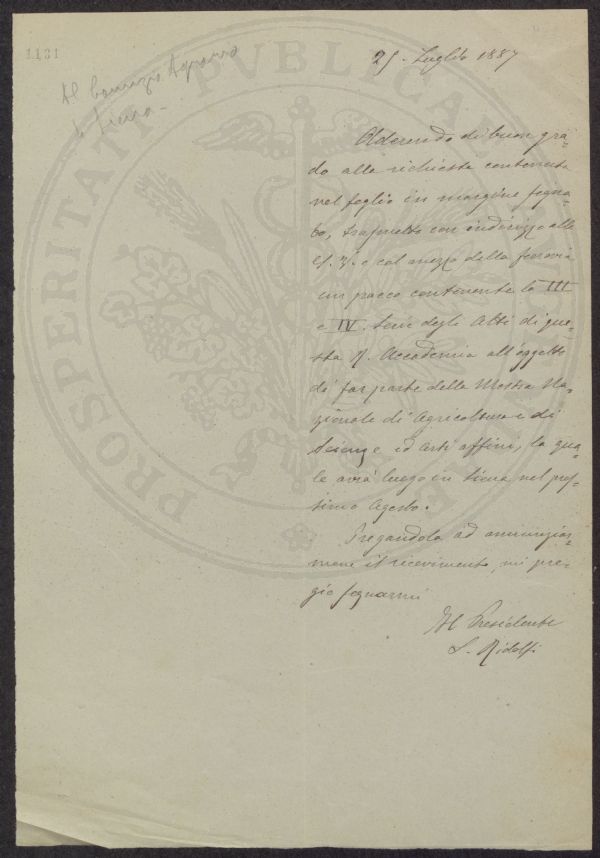 1131
Al Comizio Agrario
di Siena
25. Luglio 1887
Aderendo di buon gra-
do alla richiesta contenuta
nel foglio in margine segna-
to, trasmetto con indirizzo alla
S. V. e col mezzo della ferrovia
un pacco contenente la III
e IV. Serie degli Atti di que-
sta R. Accademia all'oggetto
di far parte della Mostra Na-
zionale di Agricoltura e di
Scienze ed arti affini, la qua-
le avrà luogo in Siena nel pros-
simo Agosto.
Pregandola ad annunziar-
mene il ricevimento, mi pre-
gio segnarmi
Il Presidente
L. Ridolfi
PROSPERITATI PVBLICAE